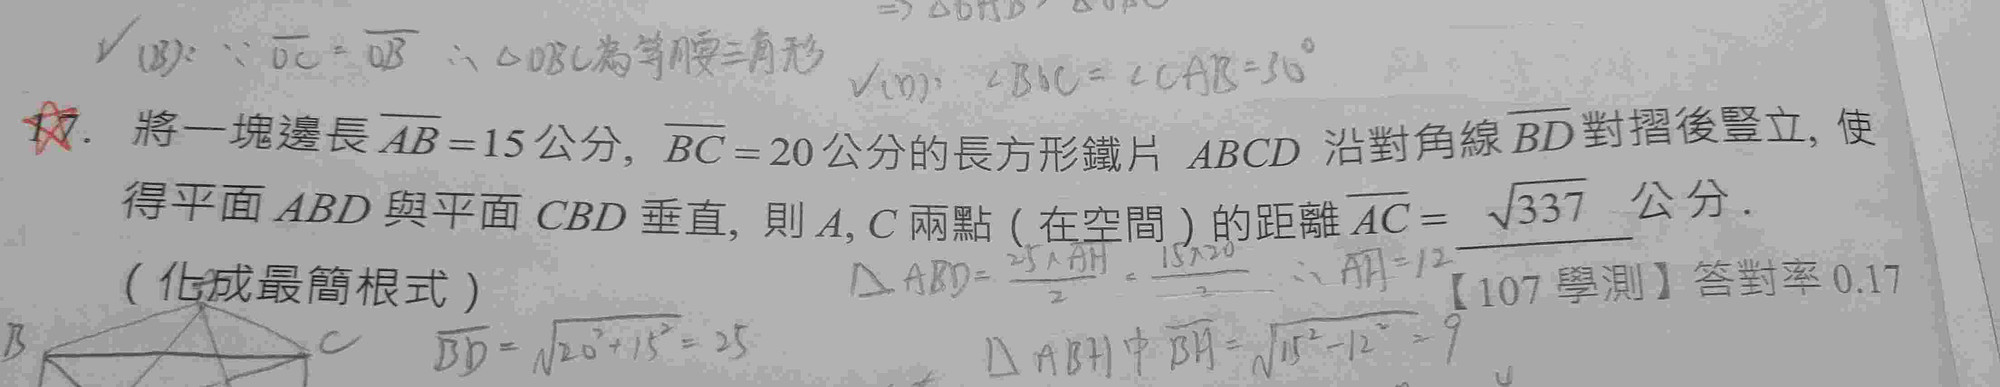 ✓(B): ∵ OC = OB ∴ △OBC為等腰三角形
✓(D): ∠BDC = ∠CAB = 30°
17. 將一塊邊長 AB = 15 公分, BC = 20 公分的長方形鐵片 ABCD 沿對角線 BD 對摺後豎立, 使
得平面 ABD 與平面 CBD 垂直, 則 A, C 兩點 ( 在空間 ) 的距離 AC = √337 公分.
( 化成最簡根式 )
△ABD = 25×AH/2 = 15×20/2 ∴ AH = 12
【107 學測】答對率 0.17
B
C
BD = √20²+15² = 25
△ABH中 BH = √15²-12² = 9